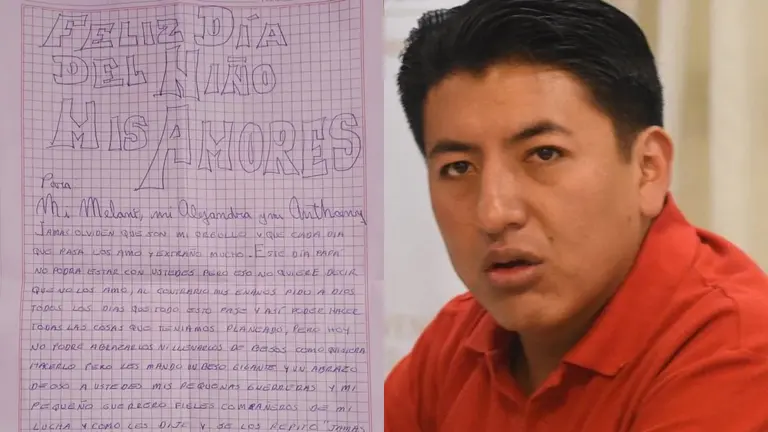 FELIZ DÍA
DEL NIÑO
MIS AMORES
Para
Mi Melani, mi Alejandra y mi Anthony
JAMAS OLVIDEN QUE SON MI ORGULLO Y QUE CADA DIA
QUE PASA LOS AMO Y EXTRAÑO MUCHO. ESTE DÍA PAPA
NO PODRA ESTAR CON USTEDES PERO ESO NO QUIERE DECIR
QUE NO LOS AMO, AL CONTRARIO MIS PIDO A DIOS
TODOS LOS DIAS QUE TODO ESTO PASE Y ASI PODER HACER
TODAS LAS COSAS QUE TENIAMOS PLANEADO, PERO HOY
NO PODRE ABRAZARLOS NI LLENARLOS DE BESOS COMO QUISIERA
HACERLO PERO LES MANDO UN BESO GIGANTE Y UN ABRAZO
DE OSO A USTEDES MIS PEQUEÑAS GUERRERAS Y MI
PEQUEÑO GUERRERO FIELES COMPAÑEROS DE MI
LUCHA Y COMO LES DIJE Y SE LOS REPITO "JAMAS